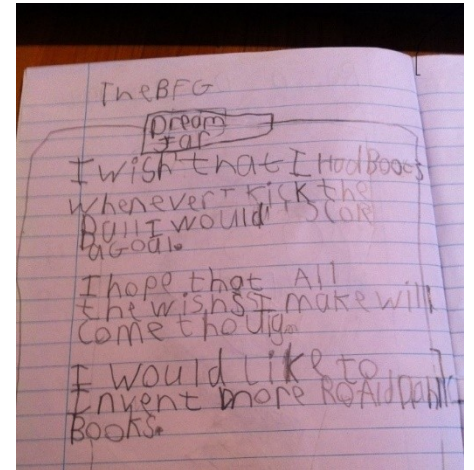 The BFG
Dream
Jar
I wish that I Had Boots
whenever I kick the
Ball I would Score
a Goal.
I hope that All
the wishs I make will
Come thoug.
I would like to
Invent more Roald Dahl
Books.